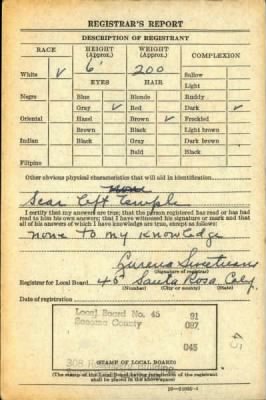 REGISTRAR'S REPORT
DESCRIPTION OF REGISTRANT
RACE HEIGHT (Approx.) WEIGHT (Approx.) COMPLEXION
White ✓ 6' 200 Sallow
EYES HAIR Light
Negro Blue Blonde Ruddy
Gray ✓ Red Dark ✓
Oriental Hazel Brown ✓ Freckled
Brown Black Light brown
Indian Black Gray Dark brown
Bald Black
Filipino
Other obvious physical characteristics that will aid in identification
None
Scar left temple
I certify that my answers are true; that the person registered has read or has had
read to him his own answers; that I have witnessed his signature or mark and that
all of his answers of which I have knowledge are true, except as follows:
none to my knowledge
(Signature of registrar)
Registrar for Local Board 45 Santa Rosa
(Number) (City or county) (State)
Date of registration
Local Board No. 45 91
Sonoma County 097
045
45
308
(STAMP OF LOCAL BOARD)
(The stamp of the Local Board having jurisdiction of the registrant
shall be placed in the above space)